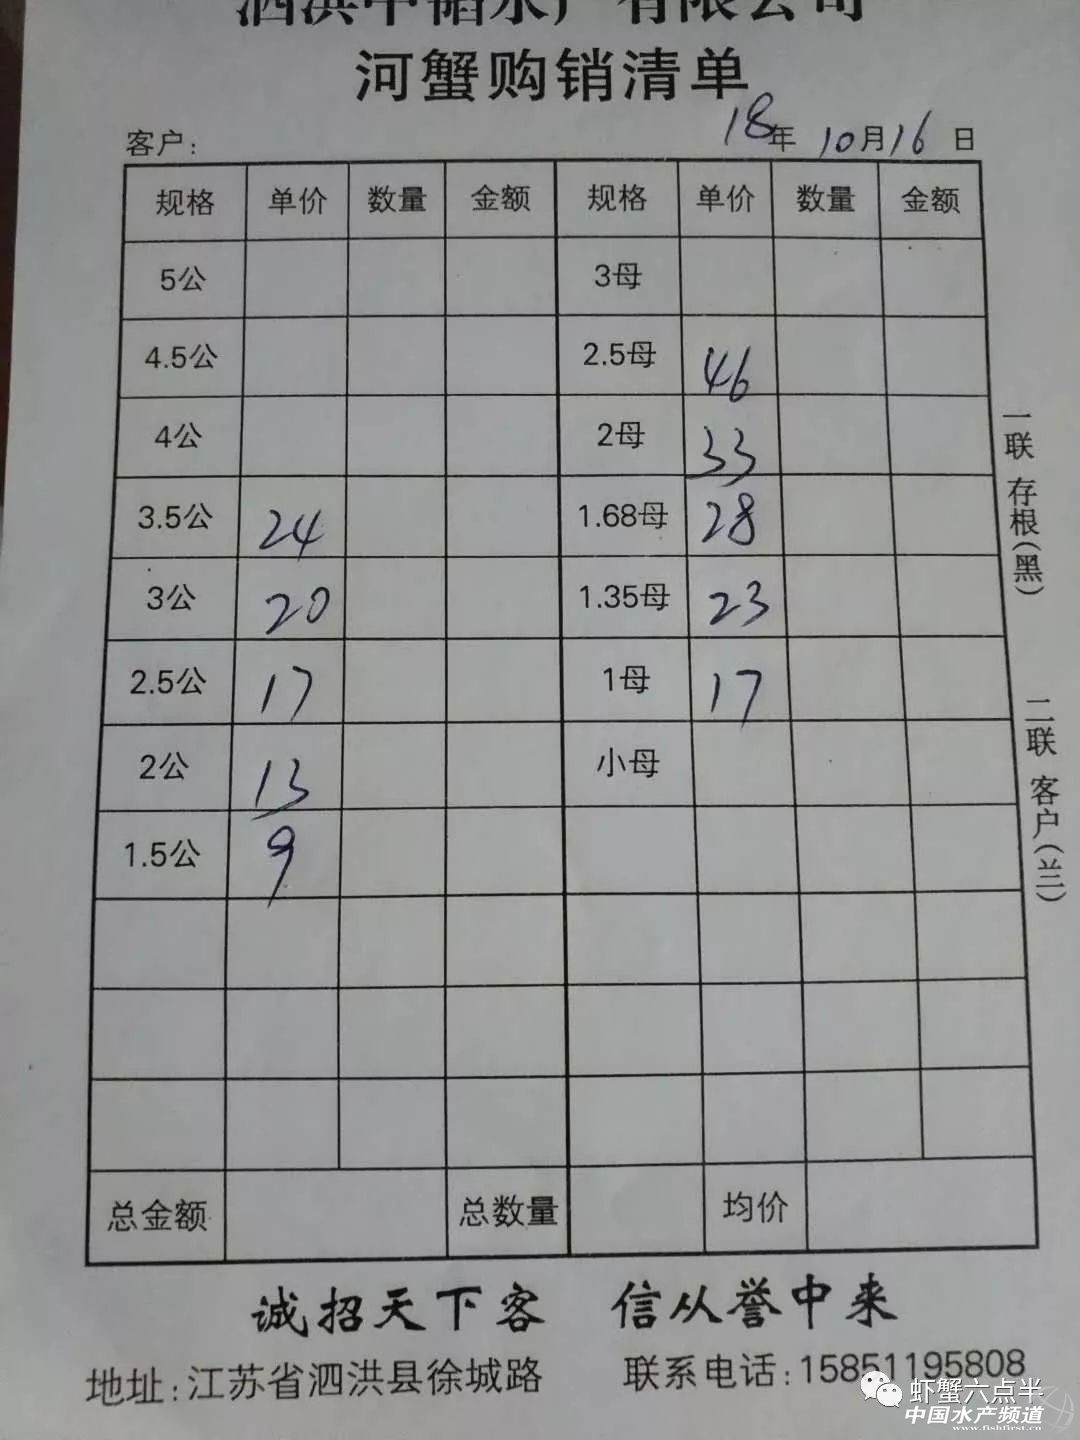 泗洪中韬水产有限公司
河蟹购销清单
客户: 18年 10月16日
规格 单价 数量 金额 规格 单价 数量 金额
5公 3母
4.5公 2.5母 46
4公 2母 33
3.5公 24 1.68母 28
3公 20 1.35母 23
2.5公 17 1母 17
2公 13 小母
1.5公 9
总金额 总数量 均价
一联 存根(黑)
二联 客户(兰)
诚招天下客 信从誉中来
地址:江苏省泗洪县徐城路 联系电话:15851195808
虾蟹六点半
中国水产频道
www.fishfirst.cn